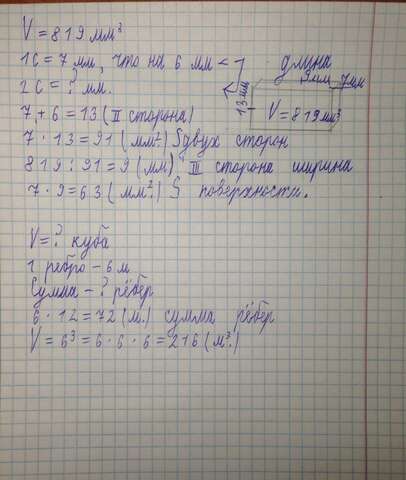 V = 819 мм³
1 С = 7 мм, что на 6 мм <
длина
2 С = ? мм.
9мм 7мм
13 мм
V = 819 мм³
7 + 6 = 13 (II сторона)
7 · 13 = 91 (мм².) S двух сторон
819 : 91 = 9 (мм) III сторона ширина
7 · 9 = 63 (мм².) S поверхности.
V = ? куба
1 ребро – 6 м
Сумма – ? рёбер
6 · 12 = 72 (м.) сумма рёбер
V = 6³ = 6 · 6 · 6 = 216 (м³.)